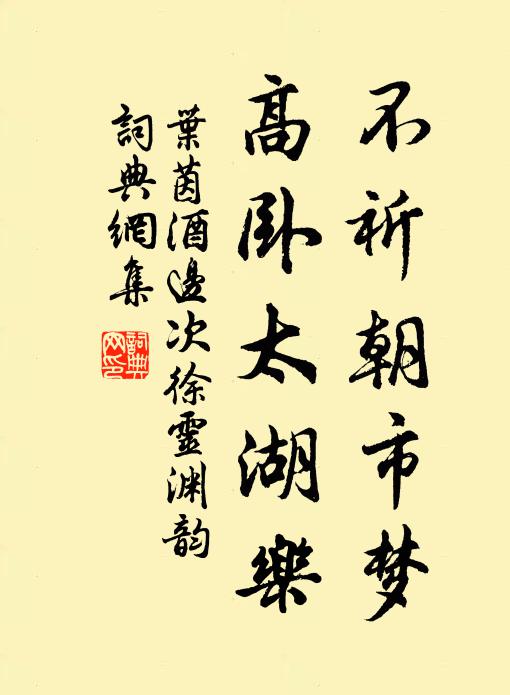 不祈朝市梦
高卧太湖樂
葉茵酒邊次徐靈渊韵
詞典網集
詞典網印